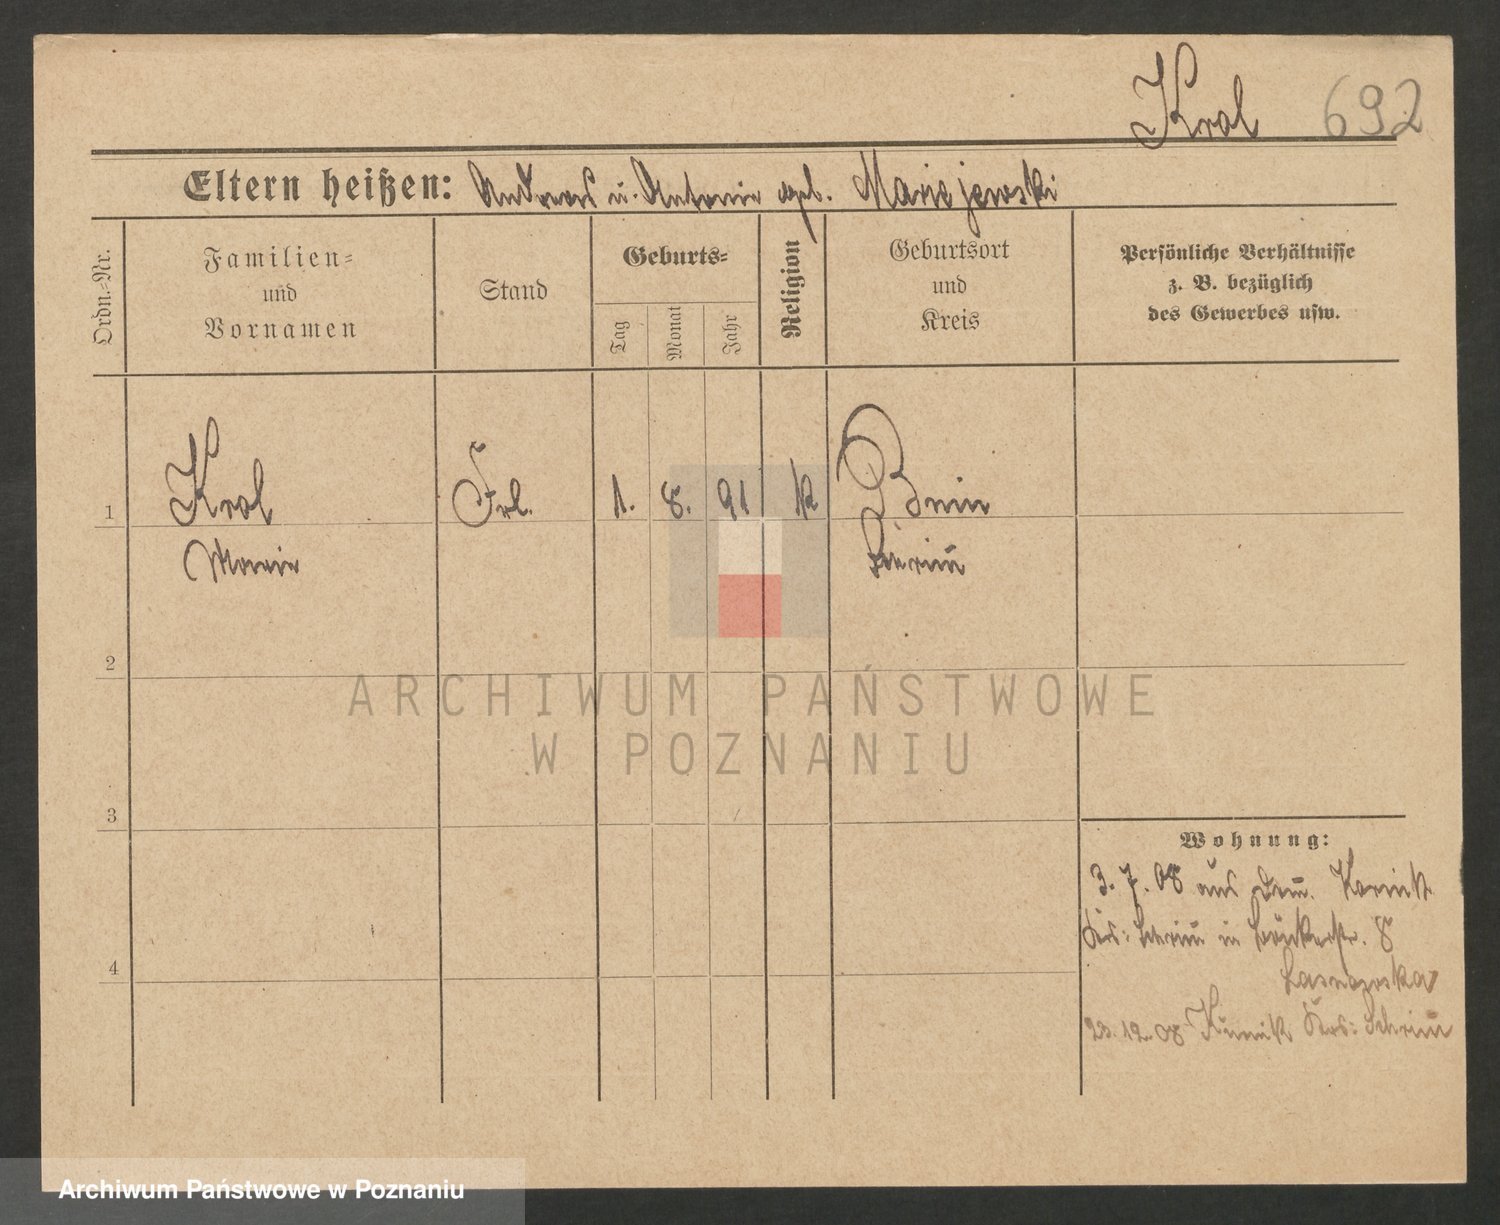 Kral 692
Eltern heißen: Andreas u. Antonie geb. Maciejewski
Ordn.-Nr.
Familien-
und
Vornamen
Stand
Geburts-
Tag
Monat
Jahr
Religion
Geburtsort
und
Kreis
Persönliche Verhältnisse
z. B. bezüglich
des Gewerbes usw.
1 Kral Frl. 1. 8. 91 k Bnin
Marie Schrim̄
2
ARCHIWUM PAŃSTWOWE
W POZNANIU
3
Wohnung:
3. 7. 08 aus Dom.
Krs: Schrim̄ in 8
4
23. 12. 08 Krs: Schrim̄
Archiwum Państwowe w Poznaniu